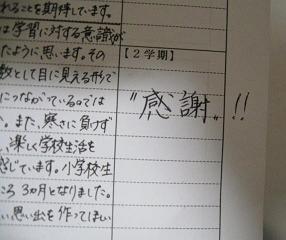 れることを期待しています。
は学習に対する意識が
たように思います。その
数として目に見える形で
につながっているのでは
。また、寒さに負けず
、楽しく学校生活を
感じています。小学校生
ころ3カ月となりました。
い思い出を作ってほしい
【2学期】
"感謝"!!